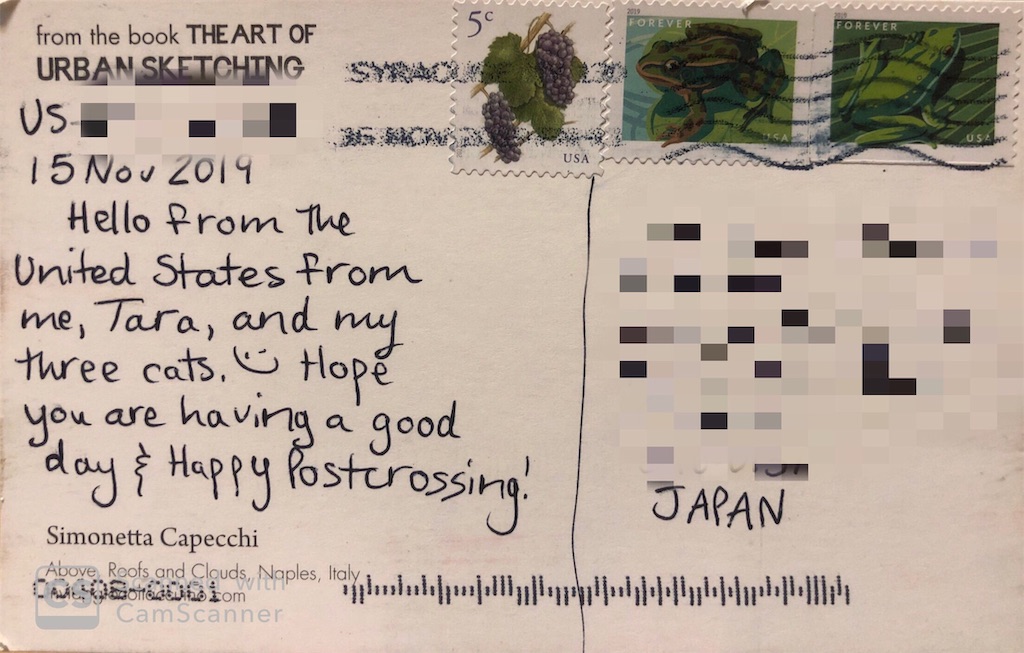 from the book THE ART OF
URBAN SKETCHING
US
15 Nov 2019
Hello from the
United States from
me, Tara, and my
three cats. Hope
you are having a good
day & Happy Postcrossing!
Simonetta Capecchi
Above, Roofs and Clouds, Naples, Italy
5c
USA
2019
FOREVER
USA
2019
FOREVER
USA
SYRACUSE
JAPAN
CS Scanned with
CamScanner